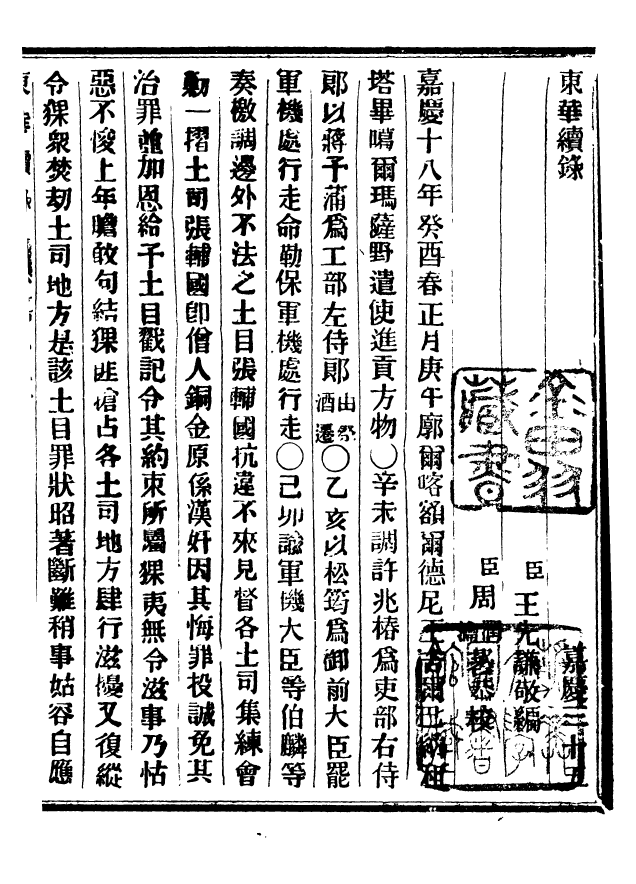 東華續錄
嘉慶三十五
臣王先謙敬編
臣周潤蕃恭校
嘉慶十八年癸酉春正月庚午廓爾喀額爾德尼王吉爾巴納足
塔畢噶爾瑪薩野遣使進貢方物○辛未調許兆椿為吏部右侍
郎以蔣予蒲為工部左侍郎由祭酒遷○乙亥以松筠為御前大臣罷
軍機處行走命勒保軍機處行走○己卯諭軍機大臣等伯麟等
奏檄調邊外不法之土目張輔國抗違不來見督各土司集練會
勦一摺土司張輔國卽僧人銅金原係漢奸因其悔罪投誠免其
治罪並加恩給予土目戳記令其約束所屬猓夷無令滋事乃怙
惡不悛上年膽敢句結猓匪搶占各土司地方肆行滋擾又復縱
令猓衆焚劫土司地方是該土目罪狀昭著斷難稍事姑容自應